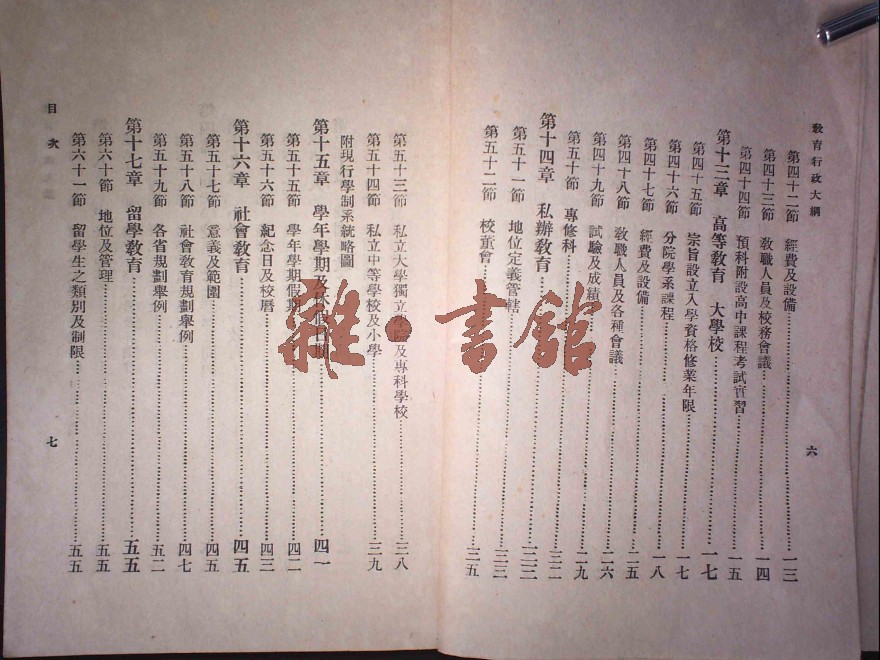 教育行政大綱
第四十二節 經費及設備……一三
第四十三節 教職人員及校務會議……一四
第四十四節 預科附設高中課程考試實習……一五
第十三章 高等教育 大學校……一七
第四十五節 宗旨設立入學資格修業年限……一七
第四十六節 分院學系課程……一八
第四十七節 經費及設備……二五
第四十八節 教職人員及各種會議……二六
第四十九節 試驗及成績……二九
第五十節 專修科……三二
第十四章 私辦教育……三二
第五十一節 地位定義管轄……三三
第五十二節 校董會……三五
六
第五十三節 私立大學獨立學院及專科學校……三八
第五十四節 私立中等學校及小學……三九
附現行學制系統略圖
第十五章 學年學期及休假日期……四一
第五十五節 學年學期假期……四二
第五十六節 紀念日及校曆……四三
第十六章 社會教育……四五
第五十七節 意義及範圍……四五
第五十八節 社會教育規劃舉例……四七
第五十九節 各省規劃舉例……五二
第十七章 留學教育……五五
第六十節 地位及管理……五五
第六十一節 留學生之類別及制限……五五
目次
七
雜·書館